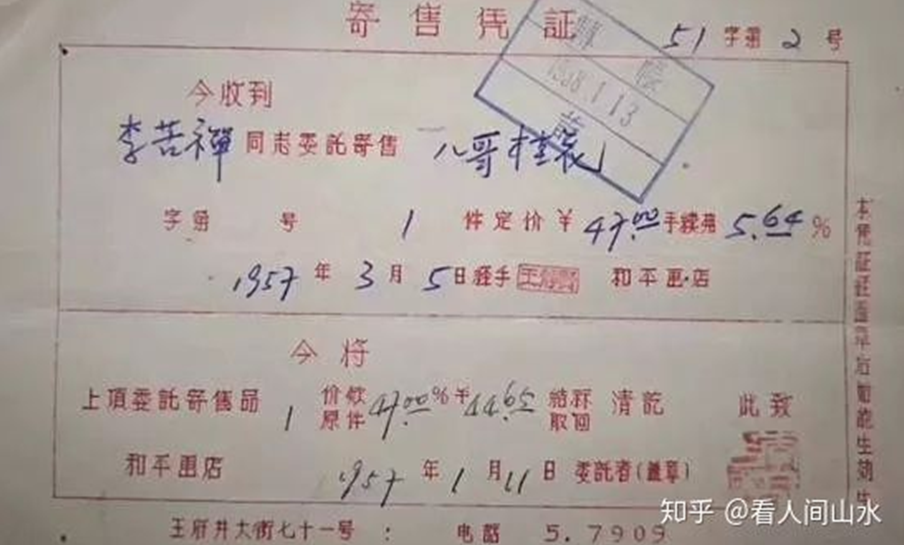 寄售凭証
51 字第 2 号
今收到
李苦禪 同志委託寄售 八哥桂花
字第 号 1 件定价¥ 47.00 手續費 5.64 %
1957 年 3 月 5 日経手 和平画店
今将
上項委託寄售品 1 价款 原件 47.00 % 结算 取回 清訖 此致
和平画店 1957 年 1 月 11 日 委託者(蓋章)
王府井大街七十一号: 电話 5.7909
1958.1.13
本凭証経蓋章后始能生効
知乎 @看人间山水